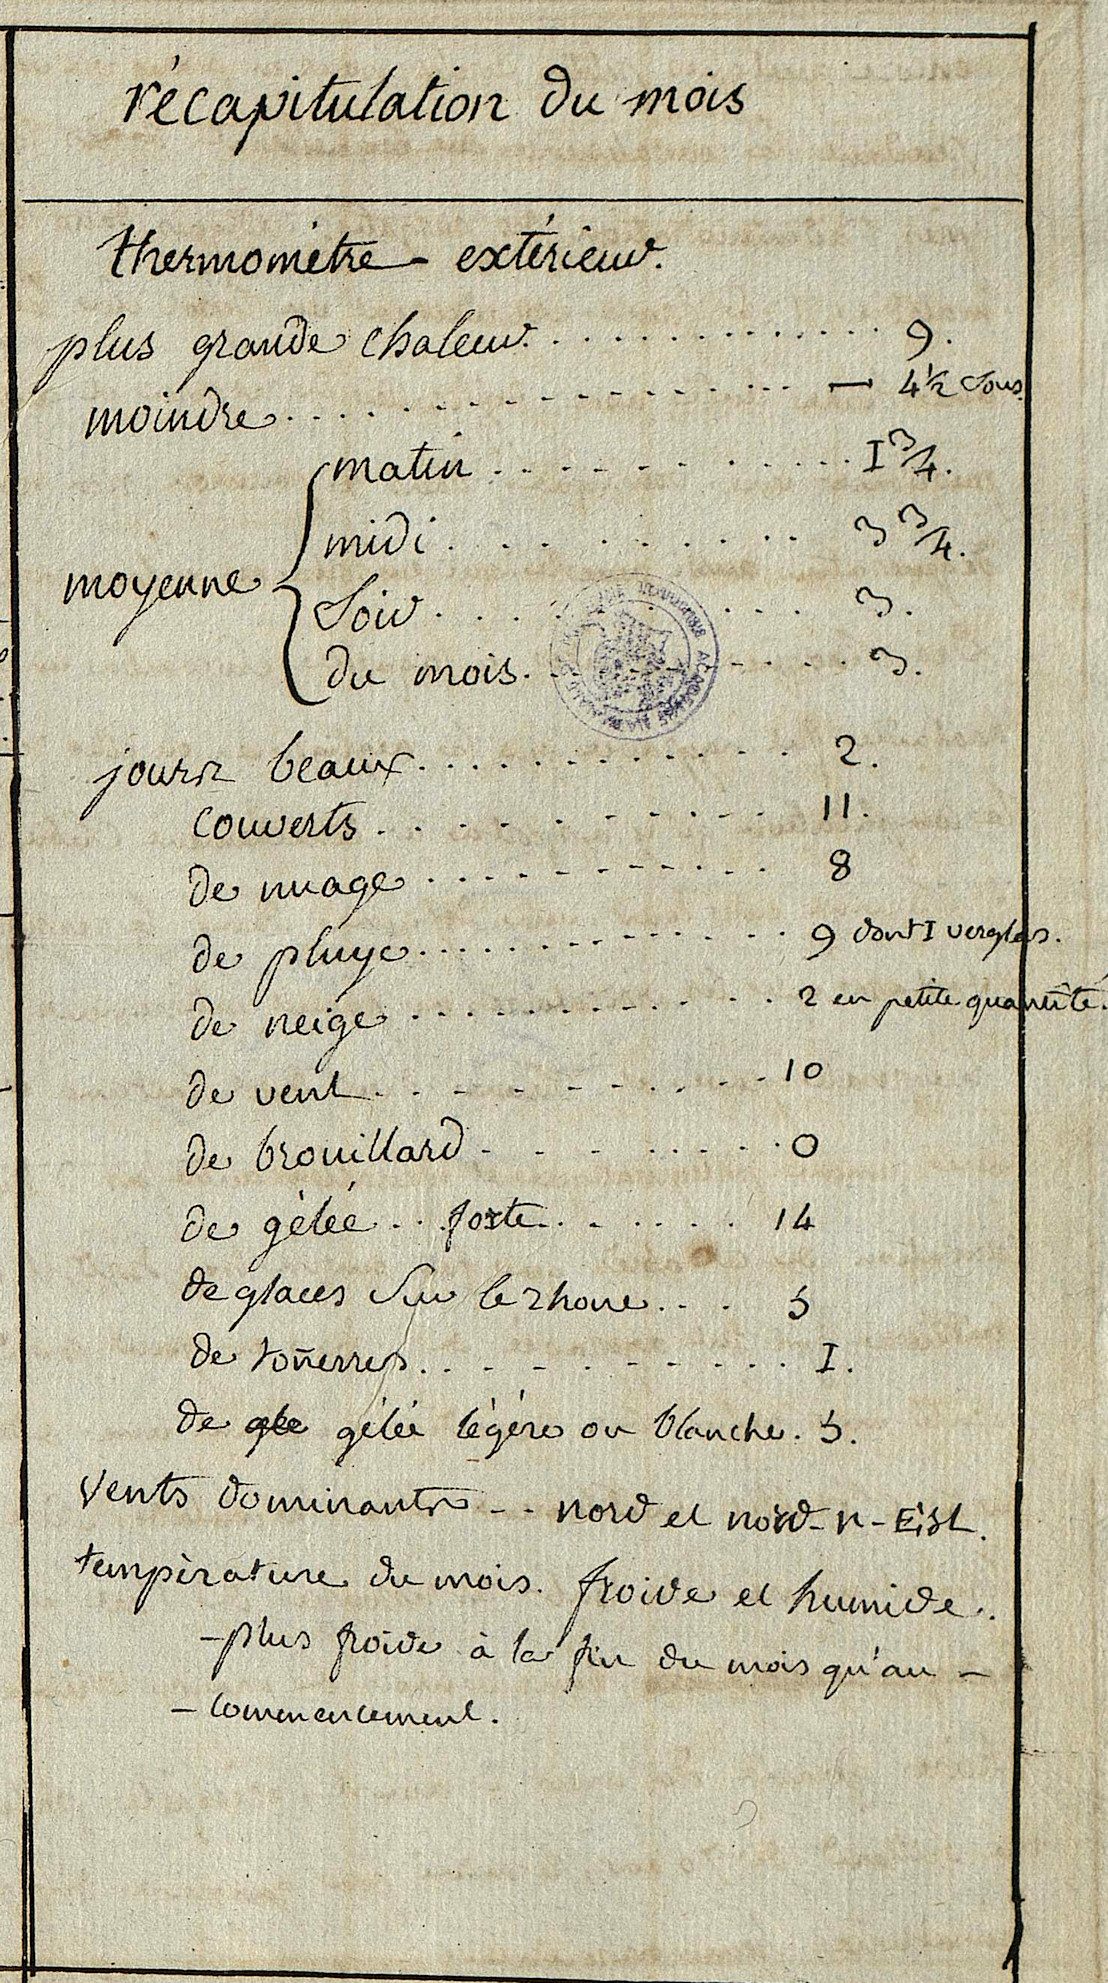 récapitulation du mois
thermométre extérieur.
plus grande chaleur. . . . . . . . . . . . 9.
moindre. . . . . . . . . . . . . . . — 4½ sous.
matin . . . . . . . . . . . . 1 3/4.
midi . . . . . . . . . . 3 3/4.
moyenne
Soir . . . . . . . . . 3.
du mois. . . . . . . . . 3.
jours beaux. . . . . . . . . . . 2.
couverts . . . . . . . . . . 11.
de nuage . . . . . . . . . . . 8
de pluye. . . . . . . . . . . . 9 dont 1 verglas.
de neige . . . . . . . . . . . 2 en petite quantité.
de vent . . . . . . . . . . . 10
de brouillard . . . . . . . . . 0
de gélée . . forte . . . . . . 14
de glaces sur le rhone . . . 5
de toñerres . . . . . . . . . . 1.
de gle gélée légére ou blanche . 5.
Vents dominants - - nord et nord-n-Est.
température du mois. froide et humide.
- plus froide à la fin du mois qu'au -
- commencement.